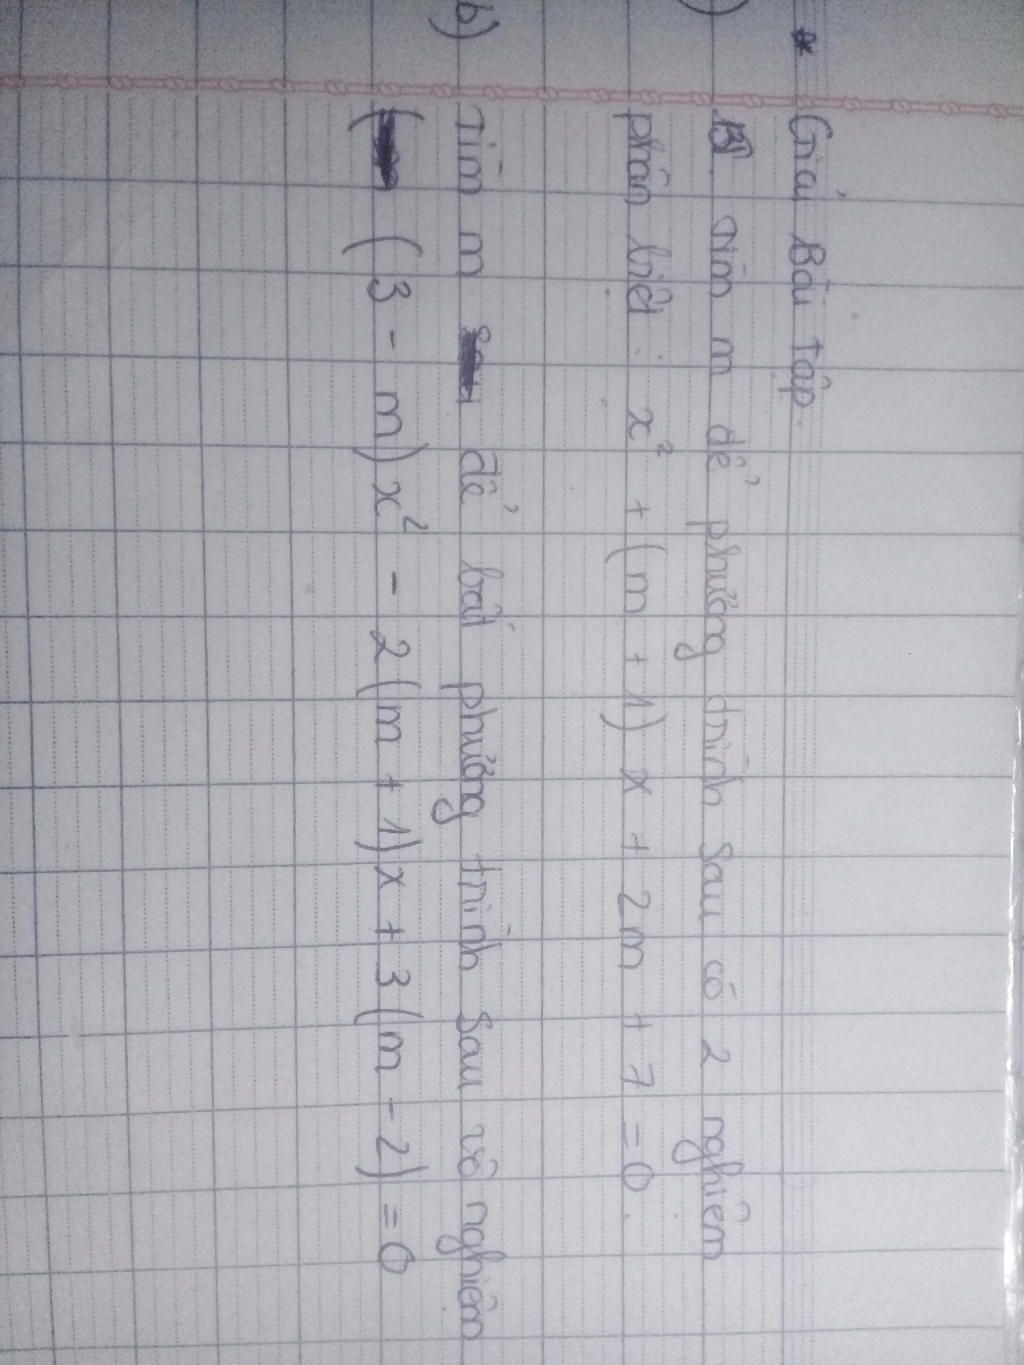 * Giải Bài tập.
) Tìm m để phương trình sau có 2 nghiệm
phân biệt : x² + (m + 1) x + 2m + 7 = 0.
b) Tìm m để bất phương trình sau vô nghiệm
( (3 - m) x² - 2(m + 1)x + 3(m - 2) = 0